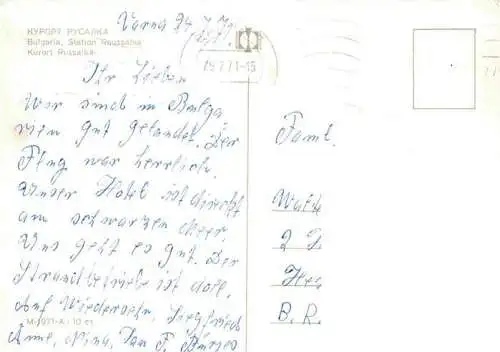 КУРОРТ РУСАЛКА
Bulgaria, Station Roussalka
Kurort Russalka
Varna 24. 7. 71
25.7.71-15
Ihr Lieben
Wir sind in Bulga
rien gut gelandet. Der
Flug war herrlich.
Unser Hotel ist direckt
am schwarzen Meer.
Uns geht es gut. Der
Strandbetrieb ist doll.
Auf Wiedersehn, Siegfried
Anne, Nina, Fam F. Bürger
M-1971-A/10 ct
Faml.
B. R.